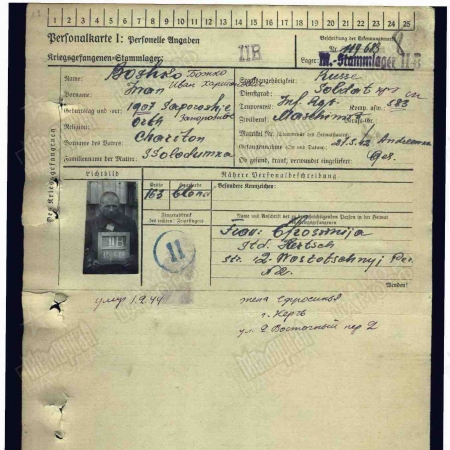 1 2 3 4 5 6 7 8 9 10 11 12 13 14 15 16 17 18 19 20 21 22 23 24 25
Personalkarte I: Personelle Angaben
Kriegsgefangenen-Stammlager:
II B
Beschriftung der Erkennungsmarke
Nr. 119683
Lager: M.-Stammlager II B
Des Kriegsgefangenen
Name: Boshko Божко
Vorname: Iwan Иван Харитонович
Geburtstag und -ort: 1907 Saporoshje
Запорожье
Religion: Orth
Vorname des Vaters: Chariton
Familienname der Mutter:
Staatsangehörigkeit: Russe
Dienstgrad: Soldat
Truppenteil: Inf. Rgt. 583 Komp. usw.
Zivilberuf:
Matrikel Nr. (Stammrolle des Heimatstaates)
Gefangennahme (Ort und Datum): 21.5.42
Ob gesund, krank, verwundet eingeliefert: Ges.
Lichtbild
Nähere Personalbeschreibung
Größe
Haarfarbe
Besondere Kennzeichen:
163 blond
Fingerabdruck
des rechten Zeigefingers
Name und Anschrift der zu benachrichtigenden Person in der Heimat
des Kriegsgefangenen
II B
11
Frau:
Std. Kertsch
str. 2. Wostotschnyj Per.
Wenden!
умер 1.2.44
жена Ефросинья
г. Керчь
ул. 2 Восточный пер 2